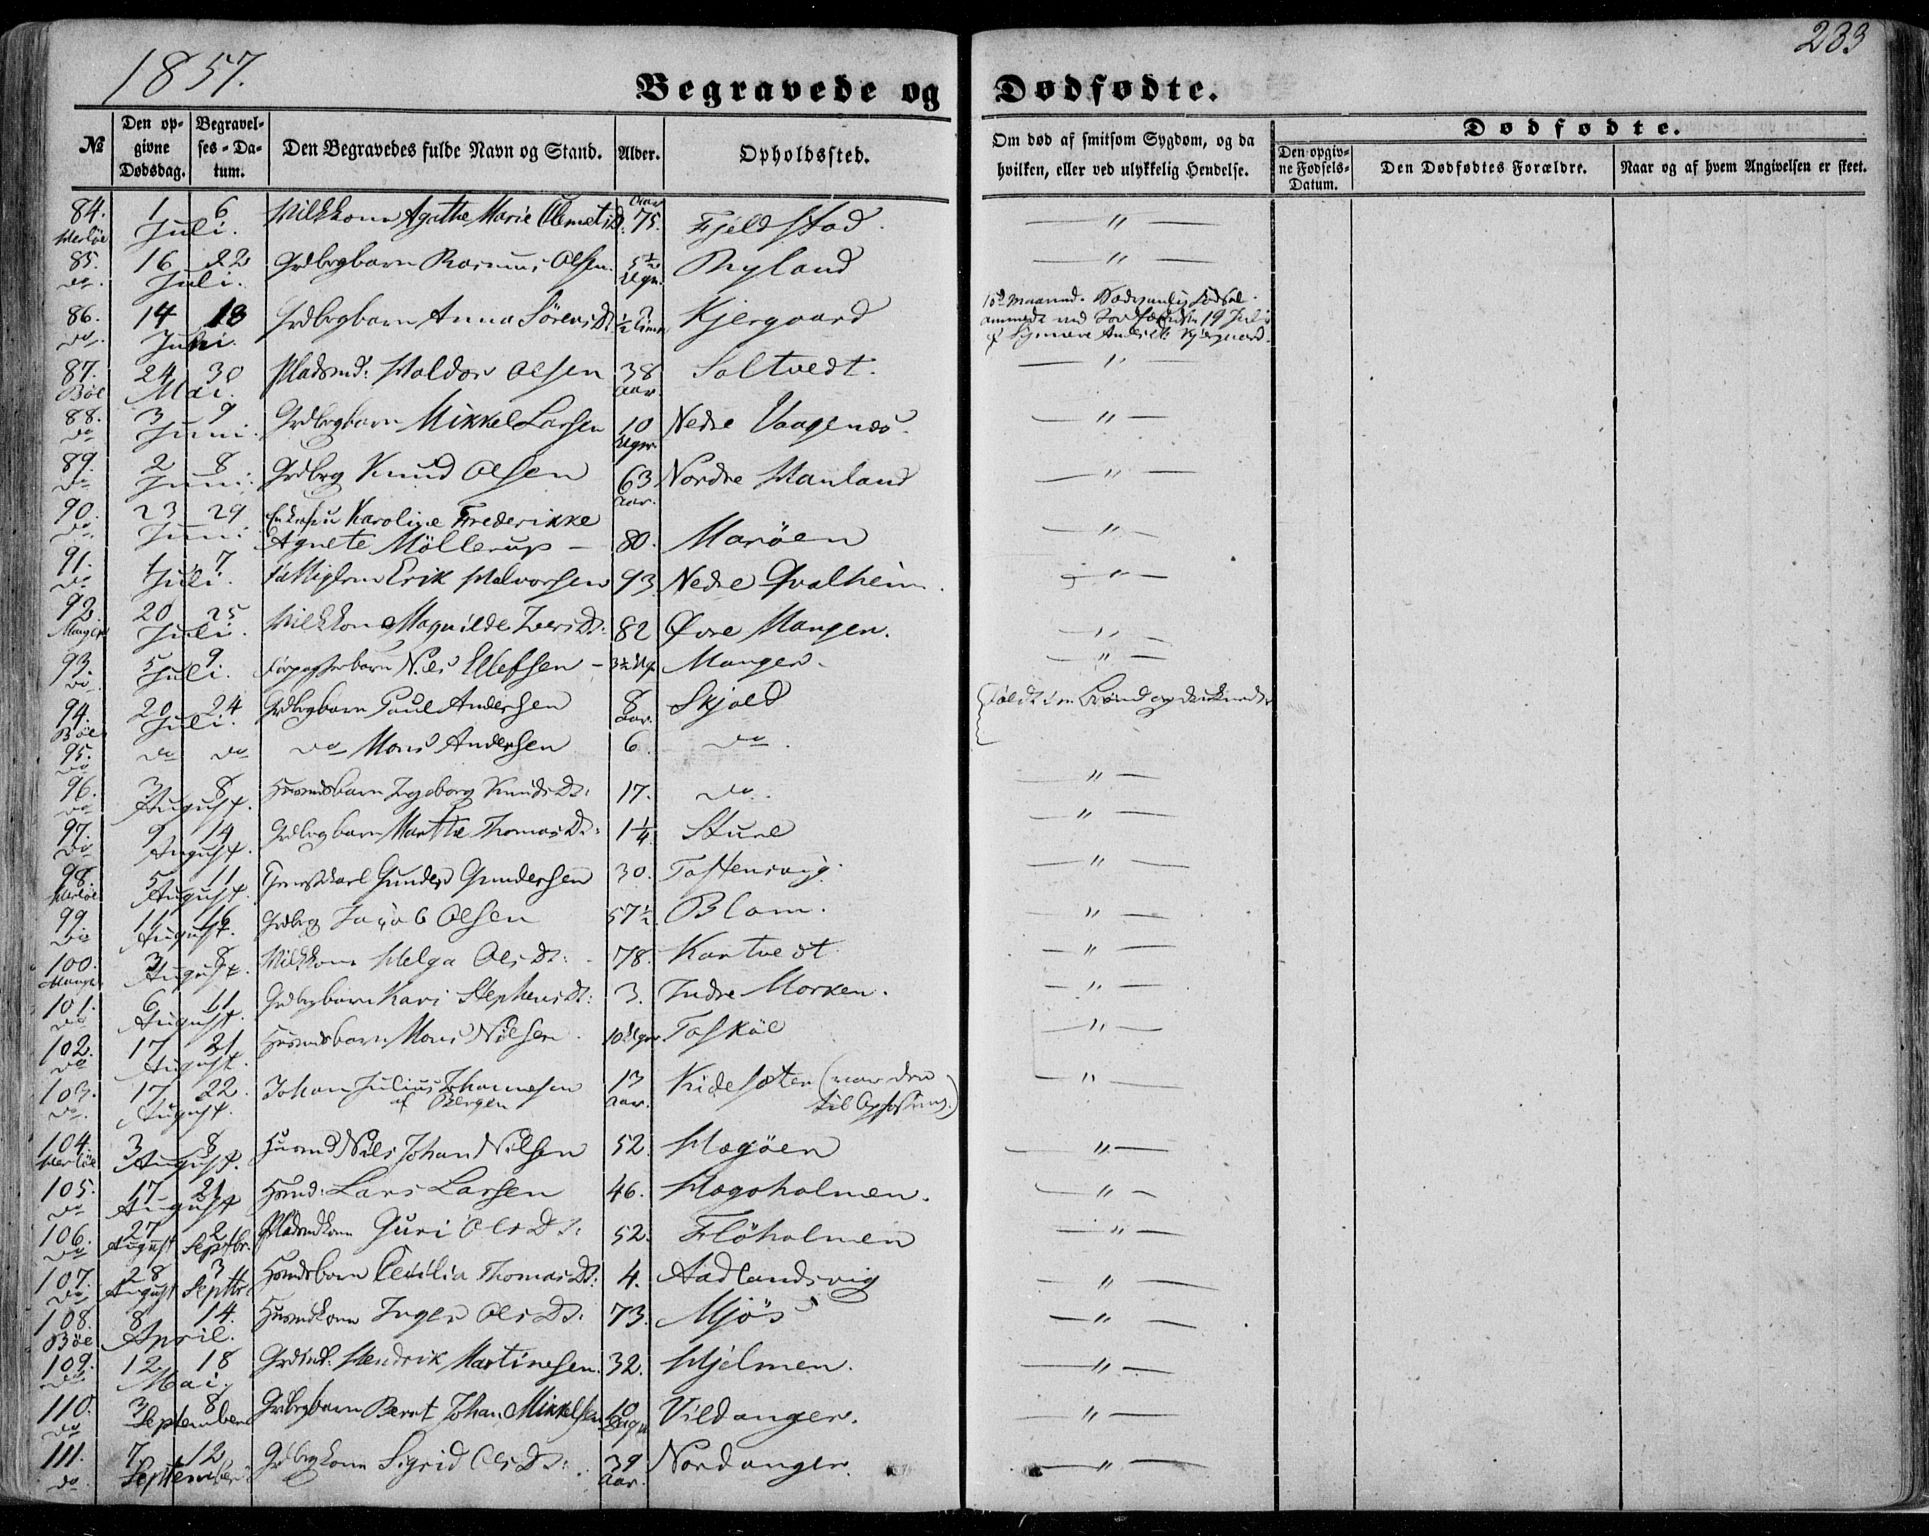 1857.
233
Begravede og Dødfødte.
№
Den opgivne Dødsdag.
Begravelses-Datum.
Den Begravedes fulde Navn og Stand.
Alder.
Opholdssted.
Om død af smitsom Sygdom, og da hvilken, eller ved ulykkelig Hendelse.
Dødfødte.
Den opgivne Fødsels-Datum.
Den Dødfødtes Forældre.
Naar og af hvem Angivelsen er skeet.
84. Herlöe 1 6 Juli. Agathe Marie Aar 75. Fjeldstad. "
85. do. 16 22 Juli. Grdbrgbarn Rasmus Olsen. 5½ Uger Ryland "
86. do. 14 18 Juni. Grdbrgbarn Anna SörensDt ½ Time Kjergaard
87. Böe 24 30 Mai. Pladsmd: Haldor Olsen 38 Aar Soltvedt. "
88. do 3 9 Juni. Grdbrgbarn Mikkel Larsen 10 Uger Nedre Vaagenes. "
89. do 2 8 Juni. Grdbrg Knud Olsen 63 Aar. Nordre Manland "
90. do. 23 29 Juni Karoline Frederikke
Agnete Möllerup — 80. Maröen "
91. do 1 7 Juli. Erik Halvorsen 93 Nedre Qvalheim. "
92. Manger 20 25 Juli. Magnilde IversDt: 82 Øvre Mangen. "
93. do 5 9. Juli. Nils Ellefsen — 3½ Manger. "
94. Böe 20 24 Juli. Grdbrgbarn Paul Andersen 8 Aar. Skjold
95. do do do do Mons Andersen 6. do.
96. do 3 8 August. Husmdsbarn Ingeborg KnudsDt: 17. do. "
97. do 9 14 August. Grdbrgbarn Marthe ThomasDt: 1¼ Sture "
98. Herlöe 5 11 August. Gunder Gundersen 30. Toftensvig. "
99 do 11 16 August. Grdbrg Jacob Olsen 57½ Blom. "
100. Manger 3 8 August. Helga OlsDt: 78. Kartvedt "
101. do 6 11 August. Grdbrgbarn Kari StephensDt: 3. Indre Morken. "
102. do 17 21 August. Husmdsbarn Mons Nilsen. 10 Uger Toskäe "
103. do. 17 22. August. Johan Julius Johannesen
af Bergen 13 Aar. (var der
til Opfostring.) "
104. Herlöe 3 8 August. Husmd Nils Johan Nilsen 52. Hægöen "
105. do 17 21 August Hsmd: Lars Larsen 46. Hægoholmen. "
106. do 27 August 2 Septbr. Pladsmdkone Guri OlsDt: 52. Flöholmen "
107. do 28 August 3 Septbr Hsmdsbarn Cecilia ThomasDt: 4. Aadlandsvig "
108. Böe 8 14. April. Husmdkone Inger OlsDt: 73. Mjös "
109. do 12 18 Mai. Hendrik Martinesen. 32. Hjelmen. "
110. do 3 8 September Grdbrgbarn Bernt Johan Mikkelsen 10 Dage Vildanger. "
111. do 7 12 September Grdbrgkone Sigrid OlsDt: 39 Aar. Nordanger. "